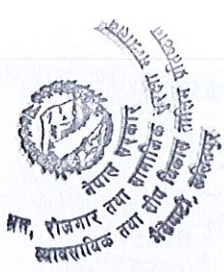 नेपाल सरकार
श्रम, रोजगार तथा सामाजिक मन्त्रालय
व्यावसायिक तथा सीप विकास तालिम प्रतिष्ठान
भैंसेपाटी, ललितपुर